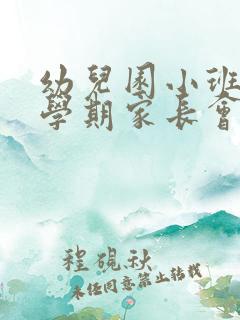 幼兒園小班
學期家長會
程硯秋
未经同意禁止转载